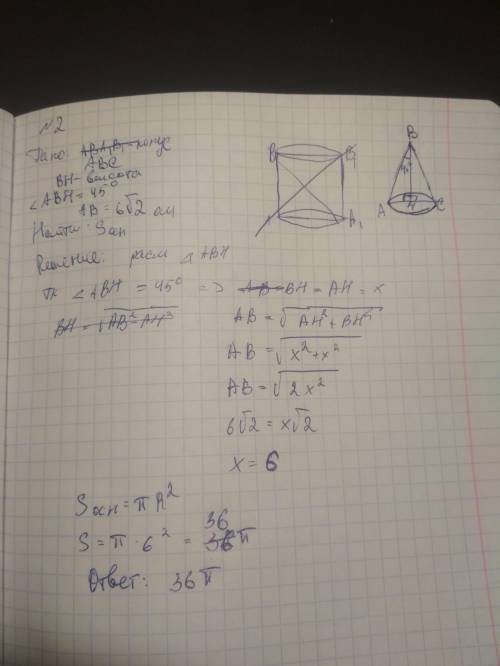 №2
Дано: ABA₁B₁ - конус
ABC
BH - высота
∠ABH = 45°
AB = 6√2 см
Найти: Sосн
Решение: расм △ABH
Тк ∠ABH = 45° => AB = BH = AH = x
BH = √AB² - AH²
AB = √AH² + BH²
AB = √x² + x²
AB = √2x²
6√2 = x√2
x = 6
Sосн = πR²
S = π · 6² = 36π
36
Ответ: 36π
B
B₁
A
A₁
B
45°
A
H
C